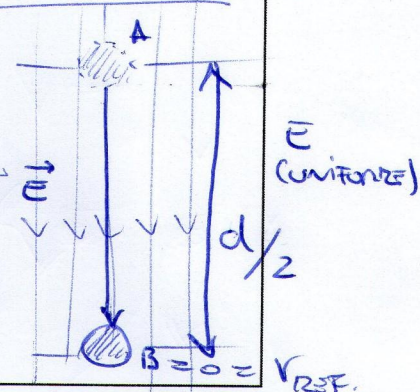 A
E
(UNIFORME)
E
d/2
B = 0 = VREF.